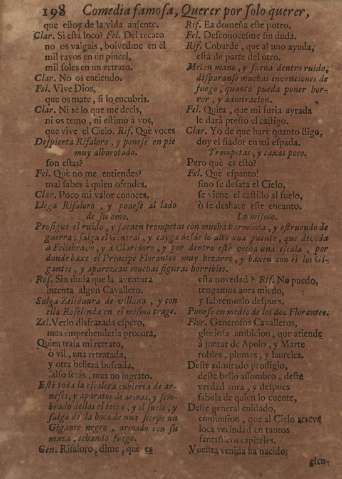 198 Comedia famosa, Querer por solo querer,
que estoy de la vida ausente.
Clar. Si està loco! Fel. Del recato
no os valgais, bolviedme en èl
mil rayos en un pincèl,
mil soles en un retrato.
Clar. No os entiendo.
Fel. Vive Dios,
que os mate, si lo encubris.
Clar. Ni sè lo que me decis,
ni os temo, ni estimo à vos,
que vive el Cielo. Rif. Què voces
Despierta Rifaloro, y ponese en pie
muy alborotado.
son estas?
Fel. Què no me entiendes?
mal sabes à quien ofendes.
Clar. Poco mi valor conoces.
Llega Rifaloro, y ponese al lado
de su amo.
Rif. Ea domeña este potro.
Fel. Desconocesme sin duda.
Rif. Cobarde, que al uno ayuda,
està de parte del otro.
Meten mano, y suena dentro ruido,
disparando muchas invenciones de
fuego, quanto pueda poner hor-
ror, y admiracion.
Fel. Quita, que mi furia ayrada
le darà presto el castigo.
Clar. Yo de que harè quanto digo,
doy el fiador en mi espada.
Trompetas, y caxas
Pero què es esto?
Fel. Què espanto!
sino se desata el Cielo,
se viene el castillo al suelo,
ò se deshace este encanto.
Lo mismo.
Prosigue el ruido, y suenen trompetas con mucha harmonia, y estruendo de
guerra; salga y cayga desde lo alto una puente, que decienda
à Felisbravo, y à Claridoro, y por dentro estè una escala, por
donde baxe el Principe Florantes muy bizarro, y baxen con èl los Gi-
gantes, y aparezcan muchas figuras horribles.
Rif. Sin duda que la aventura
intenta algun Cavallero.
Salga Zelidaura de villana, y con
ella Roselinda en el mismo trage.
Zel. Verlo disfrazada espero,
mas emprehenderla procura,
Quien traìa mi retrato,
ò vil, una retratada,
y otra belleza
falso seràs, mas no ingrato.
Estè toda la escalera cubierta de ar-
neses, y aparatos de armas, y
y
salga de la boca de una sierpe un
Gigante negro, armado con su
maza, echando fuego.
Gen. Rifaloro, dime, què es
esta novedad? Rif. No puedo,
tengamos aora miedo,
y sabremoslo despues.
Ponese en medio de los dos Florantes.
Flor. Generoso Cavallero,
gloriosa ambicion, que atiende
à juntar de Apolo, y Marte
robles, plumas, y laureles.
Deste admirado prodigio,
deste bello assombro, deste
verdad aora, y despues
fabula de quien lo cuente,
Deste general cuidado,
confusion, que al Cielo atreve
loca verdad en tantos
fantasticos
Vuestra venida ha nacido;
glen-